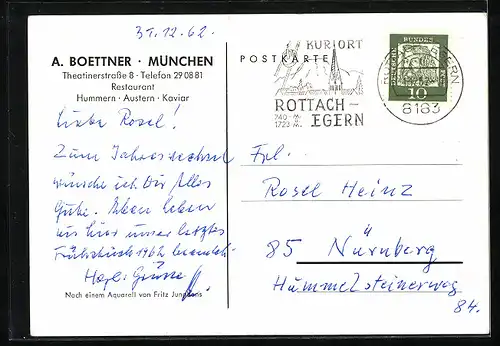 31.12.62.
A. BOETTNER · MÜNCHEN
Theatinerstraße 8 · Telefon 29 08 81
Restaurant
Hummern · Austern · Kaviar
Liebe Rosel!
Zum Jahreswechsel
wünsche ich Dir Alles
Gute. Eben haben
wir hier unser letztes
Frühstück 1962
Herzl. Grüsse
Nach einem Aquarell von Fritz
POSTKARTE
KURORT
ROTTACH-
740 M.
1723 M. EGERN
DEUTSCHE BUNDESPOST
10
8183
Frl.
Rosel Heinz
85 Nürnberg
Hummelsteinerweg
84.